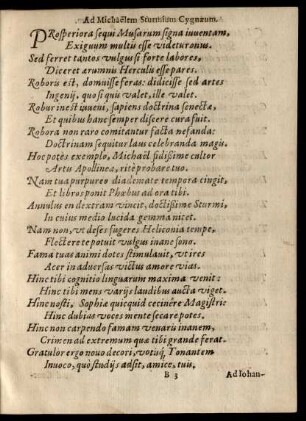 Ad Michaëlem Sturmium Cygnæum.
PRosperiora sequi Musarum signa iuventam,
Exiguum multis esse videtur onus.
Sed ferret tantos vulgus si forte labores,
Diceret ærumnis Herculis esse pares.
Roboris est, domuisse feras: didicisse sed artes
Ingenij. quo si quis valet, ille valet.
Robur inest iuveni, sapiens doctrina senectæ,
Et quibus hanc semper discere cura fuit.
Robora non raro comitantur facta nefanda:
Doctrinam sequitur laus celebranda magis.
Hoc potes exemplo, Michaël fidissime cultor
Artis Apollineæ, rite probare tuo.
Nam tua purpureo diademate tempora cingit,
Et libros ponit Phœbus ad ora tibi.
Annulus en dextram vincit, doctissime Sturmi,
In cuius medio lucida gemma nitet.
Nam non, ut deses fugeres Heliconia tempe,
Flectere te potuit vulgus inane sono.
Fama tuas animi dotes stimulavit, ut ires
Acer in adversas victus amore vias.
Hinc tibi cognitio linguarum maxima venit:
Hinc tibi mens varijs laudibus aucta viget.
Hinc nosti, Sophiæ quicquid cecinêre Magistri:
Hinc dubias voces mente secare potes.
Hinc non carpendo famam venaris inanem,
Crimen ad extremum quæ tibi grande ferat.
Gratulor ergo novo decori, votisq́ Tonantem
Invoco, quò studijs adsit, amice, tuis.
B 3
Ad Iohan-